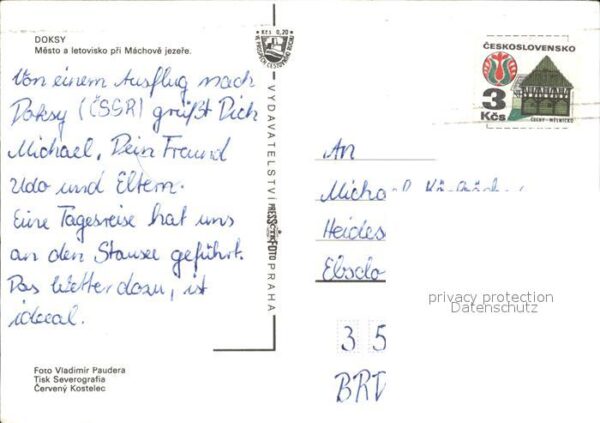 DOKSY
Město a letovisko při Máchově jezeře.
Von einem Ausflug nach
Doksy (ČSSR) grüßt Dich
Michael, Dein Freund
Udo und Eltern.
Eine Tagesreise hat uns
an den Stausee geführt.
Das Wetter dazu, ist
ideal.
Foto Vladimír Paudera
Tisk Severografia
Červený Kostelec
Kčs 0,20
VYDAVATELSTVÍ
PRESSFOTO
PRAHA
ČESKOSLOVENSKO
3
Kčs
ČECHY - MĚLNICKO
An
Michael
Heides
Ebsdo
privacy protection
Datenschutz
3 5
BRD